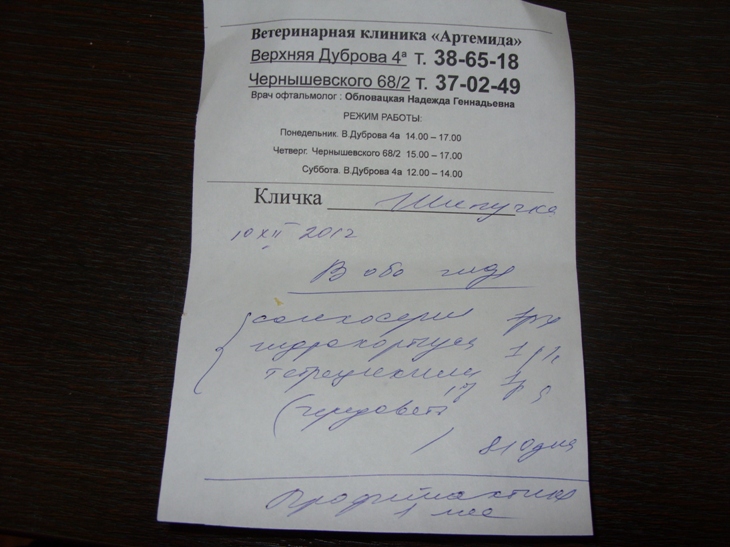 Ветеринарная клиника «Артемида»
Верхняя Дуброва 4ª т. 38-65-18
Чернышевского 68/2 т. 37-02-49
Врач офтальмолог : Обловацкая Надежда Геннадьевна
РЕЖИМ РАБОТЫ:
Понедельник. В.Дуброва 4а 14.00 – 17.00
Четверг. Чернышевского 68/2 15.00 – 17.00
Суббота. В.Дуброва 4а 12.00 – 14.00
Кличка Шипучка
10 XII 2012
В оба
солкосерил
гидрокортизон
тетрациклин
(чередовать
) 8-10 дня
Профилактика
1 мес